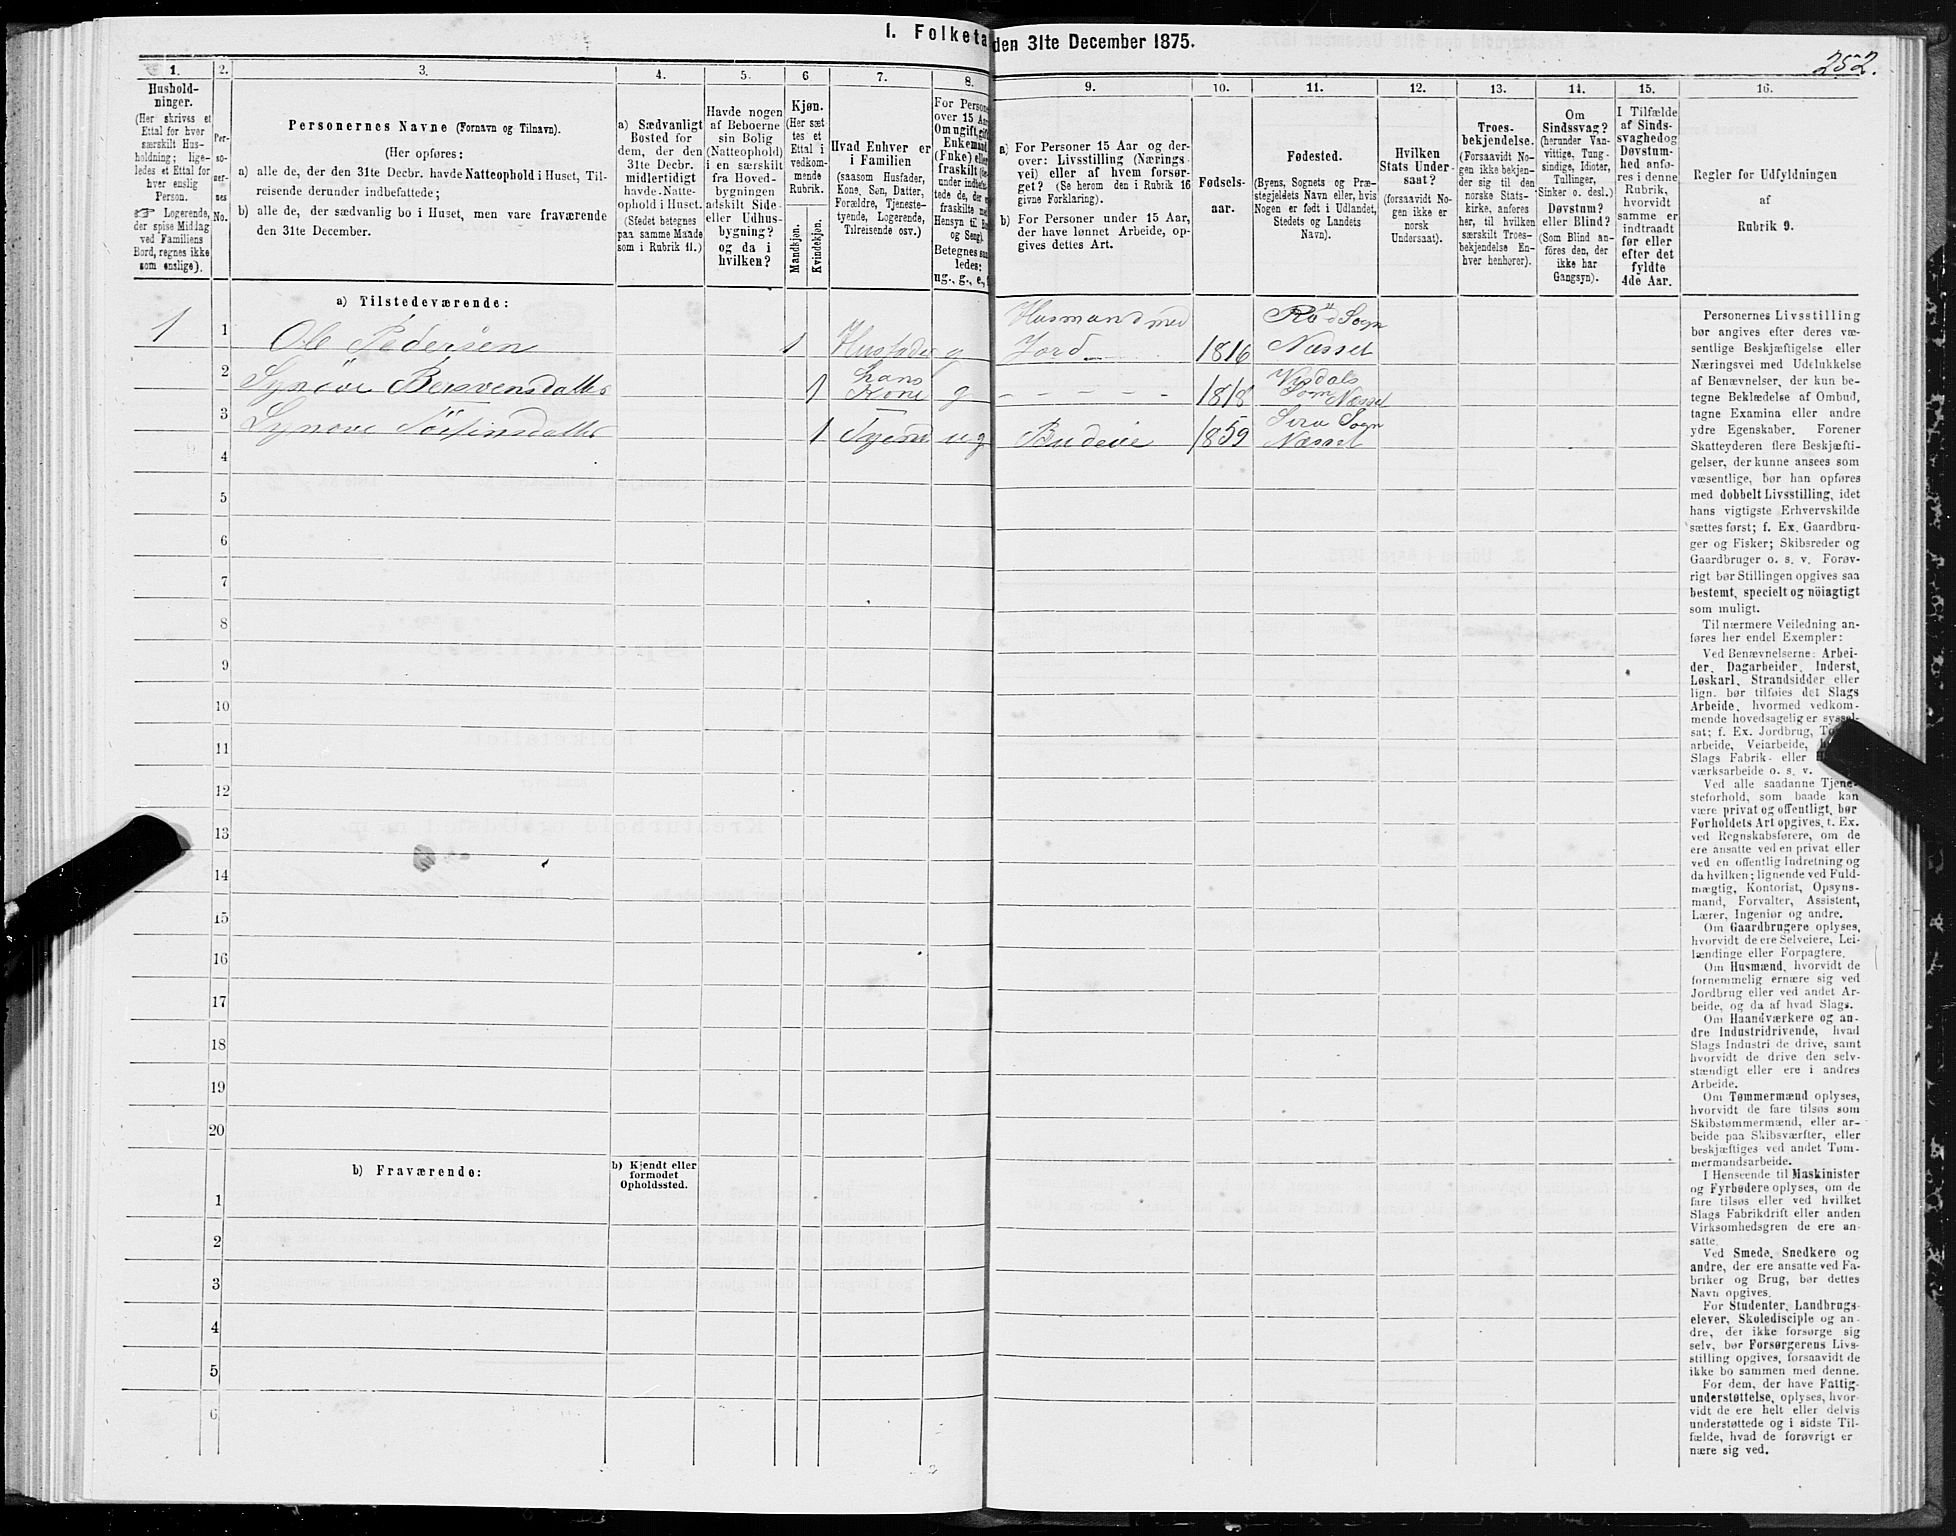 1. Folketa den 31te December 1875.
252.
1.
2.
3.
4.
5.
6
7.
8.
9.
10.
11.
12.
13.
14.
15.
16.
Hushold-
ninger.
(Her skrives et
Ettal for hver
særskilt Hus-
holdning; lige-
ledes et Ettal for
hver enslig
Person.
☞ Logerende,
der spise Middag
ved Familiens
Bord, regnes ikke
som enslige).
Per-
so-
ner-
nes
No.
Personernes Navne (Fornavn og Tilnavn).
(Her opføres:
a) alle de, der den 31te Decbr. havde Natteophold i Huset, Til-
reisende derunder indbefattede;
b) alle de, der sædvanlig bo i Huset, men vare fraværende
den 31te December.
a) Sædvanligt
Bosted for
dem, der den
31te Decbr.
midlertidigt
havde Natte-
ophold i Huset.
(Stedet betegnes
paa samme Maade
som i Rubrik 11.)
Havde nogen
af Beboerne
sin Bolig
(Natteophold)
i en særskilt
fra Hoved-
bygningen
adskilt Side-
eller Udhus-
bygning?
og da i
hvilken?
Kjøn.
(Her sæt
tes et
Ettal i
vedkom-
mende
Rubrik.
Mandkjøn.
Kvindekjøn.
Hvad Enhver er
i Familien
(saasom Husfader,
Kone, Søn, Datter,
Forældre, Tjeneste-
tyende, Logerende,
Tilreisende osv.)
For Persone
over 15 Aar
Om ugift, gift
Enkemand
(Enke) eller
fraskilt
under indbefat-
tede de, der
fraskilte med
Hensyn til Bord
og Seng).
Betegnes saa
ledes:
ug., g., e.,
a) For Personer 15 Aar og der-
over: Livsstilling (Nærings-
vei) eller af hvem forsør-
get? (Se herom den i Rubrik 16
givne Forklaring).
b) For Personer under 15 Aar,
der have lønnet Arbeide, op-
gives dettes Art.
Fødsels-
aar.
Fødested.
(Byens, Sognets og Præ-
stegjeldets Navn eller, hvis
Nogen er født i Udlandet,
Stedets og Landets
Navn).
Hvilken
Stats Under-
saat?
(forsaavidt No-
gen ikke er
norsk
Undersaat).
Troes-
bekjendelse.
(Forsaavidt No-
gen ikke bekjen-
der sig til den
norske Stats-
kirke, anføres
her, til hvilken
særskilt Troes-
bekjendelse En-
hver henhører).
Om
Sindssvag?
(herunder Van-
vittige, Tung-
sindige, Idioter,
Tullinger,
Sinker o. desl.)
Døvstum?
eller Blind?
(Som Blind an-
føres den, der
ikke har
Gangsyn).
I Tilfælde
af Sinds-
svaghed og
Døvstum-
hed anfø-
res i denne
Rubrik,
hvorvidt
samme er
indtraadt
før eller
efter det
fyldte
4de Aar.
Regler for Udfyldningen
af
Rubrik 9.
a) Tilstedeværende:
1 1 Ole Pedersen 1 Husfader g Husmand med Jord 1816 Rød Sogn Næsset
2 Synøve Bersvensdatter 1 Hans Kone g - - - - 1818 Visdals Sogn Næsset
3 Synøve Torfinsdatter 1 Tyend ug Budeie 1859 Sira Sogn Næsset
4
5
6
7
8
9
10
11
12
13
14
15
16
17
18
19
20
b) Fraværende:
b) Kjendt eller
formodet
Opholdssted.
1
2
3
4
5
6
Personernes Livsstilling
bør angives efter deres væ-
sentlige Beskjæftigelse eller
Næringsvei med Udelukkelse
af Benævnelser, der kun be-
tegne Beklædelse af Ombud,
tagne Examina eller andre
ydre Egenskaber. Forener
Skatteyderen flere Beskjæfti-
gelser, der kunne ansees som
væsentlige, bør han opføres
med dobbelt Livsstilling, idet
hans vigtigste Erhvervskilde
sættes først; f. Ex. Gaardbru-
ger og Fisker; Skibsreder og
Gaardbruger o. s. v. Forøv-
rigt bør Stillingen opgives saa
bestemt, specielt og nöiagtigt
som muligt.
Til nærmere Veiledning an-
føres her endel Exempler:
Ved Benævnelserne: Arbei-
der, Dagarbeider, Inderst,
Løskarl, Strandsidder eller
lign. bør tilføies det Slags
Arbeide, hvormed vedkom-
mende hovedsagelig er syssel-
sat; f. Ex. Jordbrug,
arbeide, Veiarbeide,
Slags Fabrik- eller
værksarbeide o. s. v.
Ved alle saadanne Tjene-
steforhold, som baade kan
være privat og offentligt, bør
Forholdets Art opgives, f. Ex.
ved Regnskabsførere, om de
ere ansatte ved en privat eller
ved en offentlig Indretning og
da hvilken; lignende ved Fuld-
mægtig, Kontorist, Opsyns-
mand, Forvalter, Assistent,
Lærer, Ingeniør og andre.
Om Gaardbrugere oplyses,
hvorvidt de ere Selveiere, Lei-
lændinge eller Forpagtere.
Om Husmænd, hvorvidt de
fornemmelig ernære sig ved
Jordbrug eller ved andet Ar-
beide, og da af hvad Slags.
Om Haandværkere og an-
dre Industridrivende, hvad
Slags Industri de drive, samt
hvorvidt de drive den selv-
stændigt eller ere i andres
Arbeide.
Om Tømmermænd oplyses,
hvorvidt de fare tilsøs som
Skibstømmermænd, eller ar-
beide paa Skibsværfter, eller
beskjæftiges ved andet Tøm-
mermandsarbeide.
I Henseende til Maskinister
og Fyrbødere oplyses, om de
fare tilsøs eller ved hvilket
Slags Fabrikdrift eller anden
Virksomhedsgren de ere an-
satte.
Ved Smede, Snedkere og
andre, der ere ansatte ved Fa-
briker og Brug, bør dettes
Navn opgives.
For Studenter, Landbrugs-
elever, Skoledisciple og an-
dre, der ikke forsørge sig
selv, bør Forsørgerens Livs-
stilling opgives, forsaavidt de
ikke bo sammen med denne.
For dem, der have Fattig-
understøttelse, oplyses, hvor-
vidt de ere helt eller delvis
understøttede og i sidste Til-
fælde, hvad de forøvrigt er
nære sig ved.